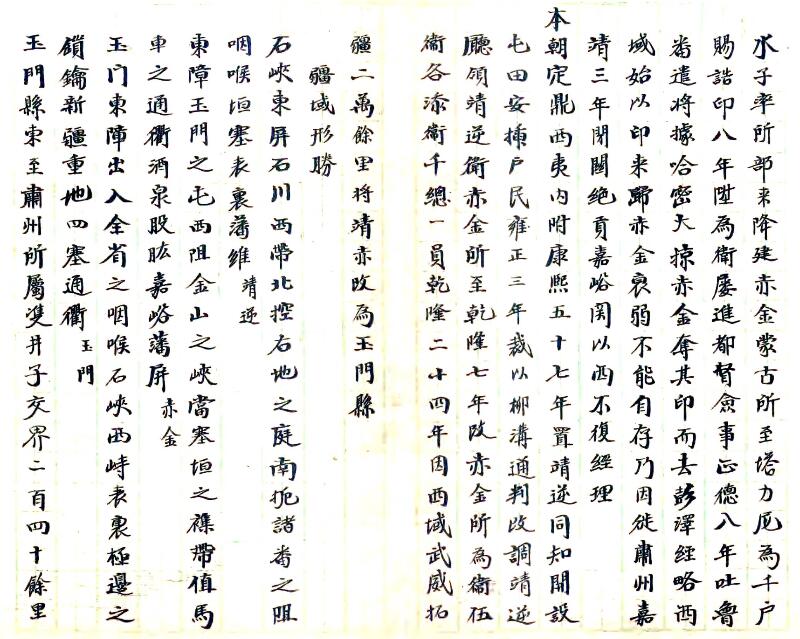 水子率所部来降建赤金蒙古所至塔力尼為千戶
賜誥印八年陞為衛屡進都督僉事正德八年吐魯
番遣将據哈宻大掠赤金奪其印而去彭澤經略西
域始以印来歸赤金衰弱不能自存乃因徙肅州嘉
靖三年閉關絶貢嘉峪関以西不復經理
本朝定鼎西夷内附康熙五十七年置靖逆同知開設
屯田安揷戶民雍正三年裁以柳溝通判改調靖逆
廳領靖逆衛赤金所至乾隆七年改赤金所為衛伍
衛各添衛千總一員乾隆二十四年因西域武威拓
疆二萬餘里将靖赤改為玉門縣
疆域形勝
石峽東屏石川西帶北控右地之庭南扼諸番之阻
咽喉垣塞表裏藩維 靖逆
東障玉門之屯西阻金山之峽當塞垣之襟帶值馬
車之通衢酒泉股肱嘉峪藩屏 赤金
玉门東障出入全省之咽喉石峽西峙表裏極邊之
鎖鑰新疆重地四塞通衢 玉門
玉門縣東至肅州所屬雙井子交界二百四十餘里